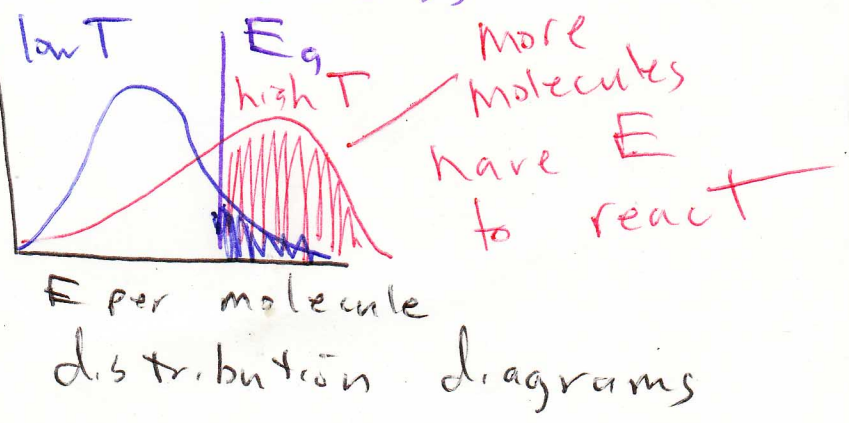 low T
Ea
high T
more
molecules
have E
to react
E per molecule
distribution diagrams